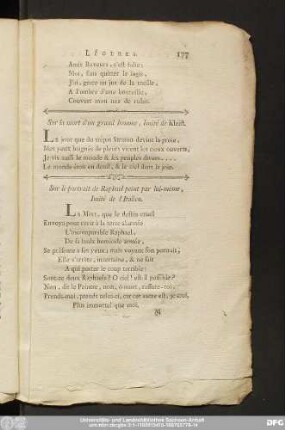 LÉGERES. 177
Amis Buveurs, c'est folie;
Moi, sans quitter le logis,
J'en guéris au jus de la treille,
A l'ombre d'une bouteille,
Couvert mon nez de rubis.
Sur la mort d'un grand homme, Imité de Kleist.
LE jour que du trépas devint la proie,
Mes yeux baignés de pleurs virent les cieux ouverts,
Je vis aussi le monde & ses peuples divers....
Le monde étoit en deuil, & le ciel dans la joie.
Sur le portrait de Raphaël peint par lui-même,
Imité de l'Italien.
LA Mort, que le destin cruel
Envoya pour ravir à la terre alarmée
L'incomparable Raphaël,
De sa faulx homicide armée,
Se présenta à ses yeux; mais voyant son portrait,
Elle s'arrête, incertaine, & ne sait
A qui porter le coup terrible:
Sont-ce deux Raphaëls? O ciel! est-il possible?
Non, dit le Peintre, non, ô mort, rassure-toi,
Prends moi, prends celui-ci, car cet autre est, je crois,
Plus immortel que moi.
Universitäts- und Landesbibliothek Sachsen-Anhalt
DFG